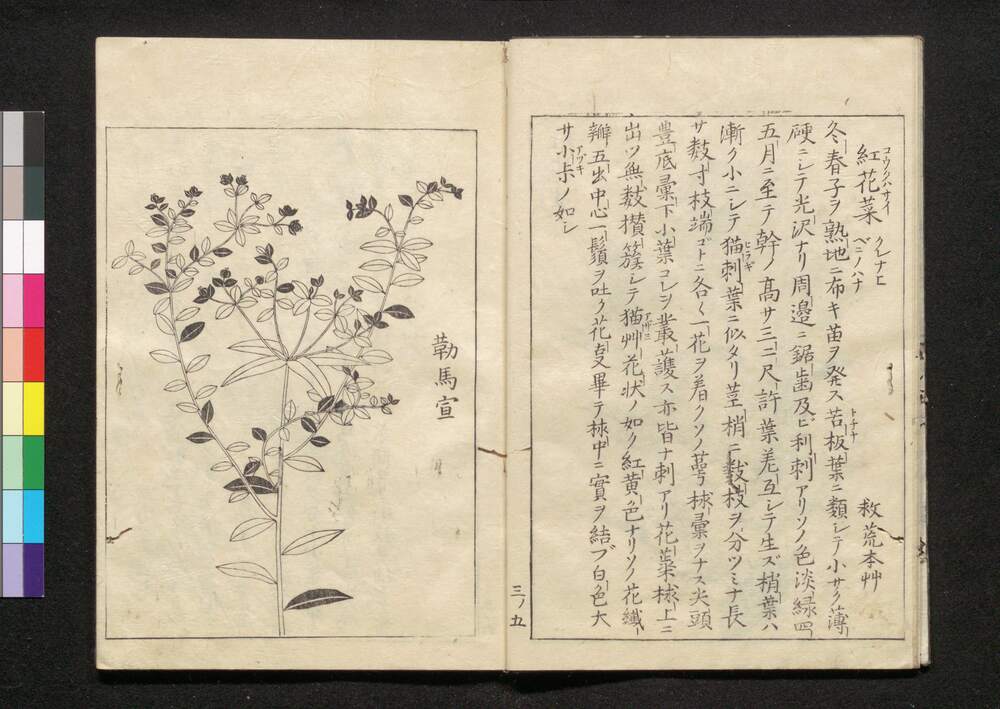 紅花菜 クレナヒ ベニノハナ 救荒本艸
コウクハサイ
冬春子ヲ熟地ニ布キ苗ヲ発ス苦板葉ニ類シテ小サク薄
硬ニシテ光沢ナリ周邉ニ鋸歯及ビ利刺アリソノ色淡緑四
五月ニ至テ幹ノ高サ三二尺許葉差互シテ生ズ梢葉ハ
漸ク小ニシテ猫刺葉ニ似タリ茎梢ニ数枝ヲ分ツミナ長
ヒラギ
サ数寸枝端ゴトニ各〱一花ヲ着クソノ萼毬彙ヲナス尖頭
豊底彙下小葉コレヲ叢護ス亦皆ナ刺アリ花蘂毬上ニ
出ツ無数攅簇シテ猫艸花状ノ如ク紅黄色ナリソノ花纎
アザミ
瓣五出中心一鬚ヲ吐ク花叓畢テ梂中ニ實ヲ結ブ白色大
サ小尗ノ如シ
アヅキ
三ノ五
勒馬宣